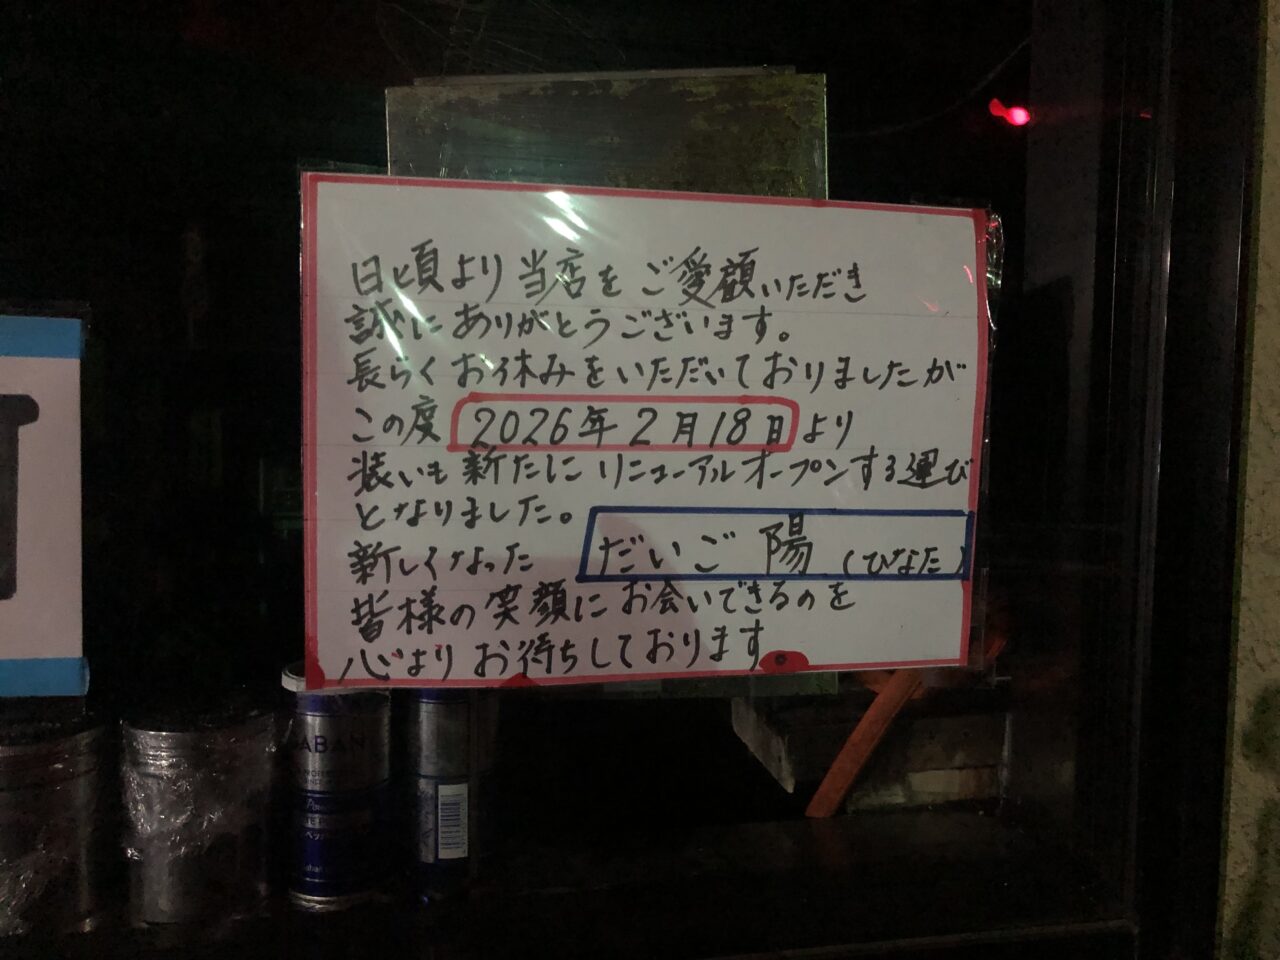 日頃より当店をご愛顧いただき
誠にありがとうございます。
長らくお休みをいただいておりましたが
この度 2026年2月18日 より
装いも新たにリニューアルオープンする運び
となりました。
新しくなった だいご 陽 (ひなた)
皆様の笑顔にお会いできるのを
心よりお待ちしております。
ABAN